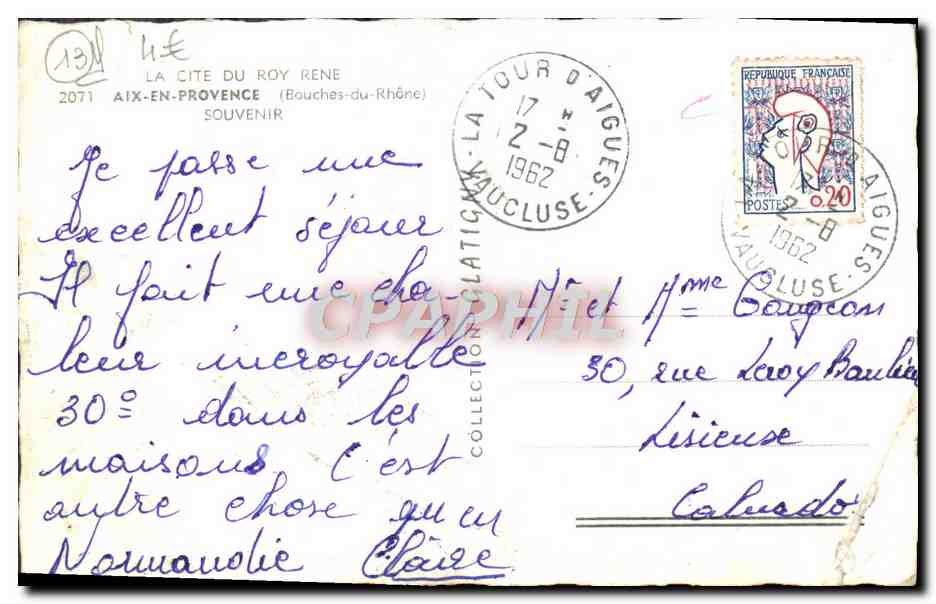 13
4€
LA CITE DU ROY RENE
2071 AIX-EN-PROVENCE (Bouches-du-Rhône)
SOUVENIR
Je passe une
excellent séjour
Il fait une cha-
leur incroyable
30° dans les
maisons. C'est
autre chose qu'en
Normandie Claire
COLLECTION GLATIGNY
LA TOUR D'AIGUES
17 H
2-8
1962
VAUCLUSE
REPUBLIQUE FRANÇAISE
POSTES 0,20
AIGUES
2-8
1962
VAUCLUSE
CPAPHIL
Mr et Mme Gougeon
30, rue Leroy Baulieu
Lisieux
Calvados